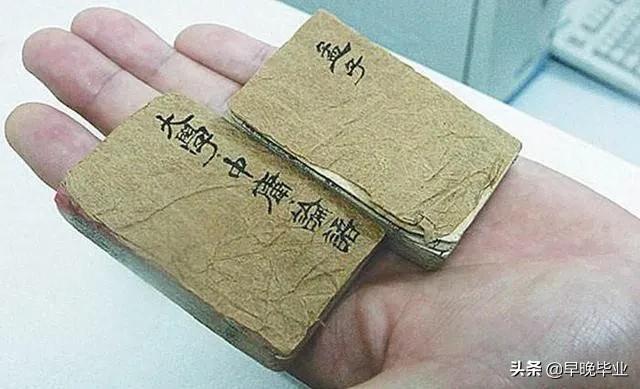 孟子
大學·中庸·論語
头条 @早晚毕业